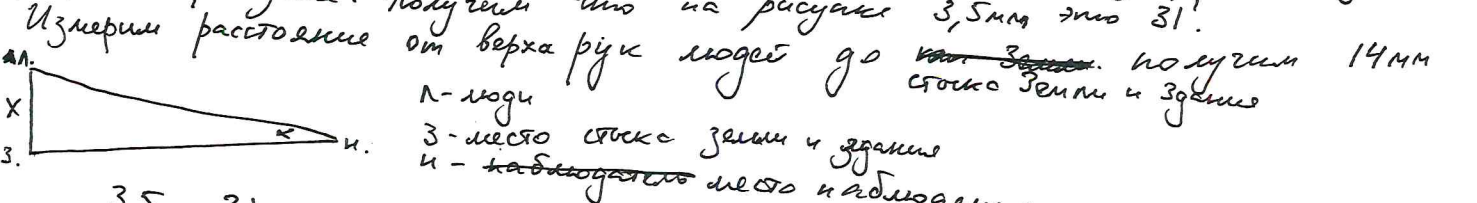 получим что на рисунке 3,5мм это 31'.
Измерим расстояние от верха рук людей до получим 14мм
стыка Земли и Здания
Л.
X
З.
α
н.
Л - люди
З - место стыка земли и здания
н - наблюдатель место
3,5